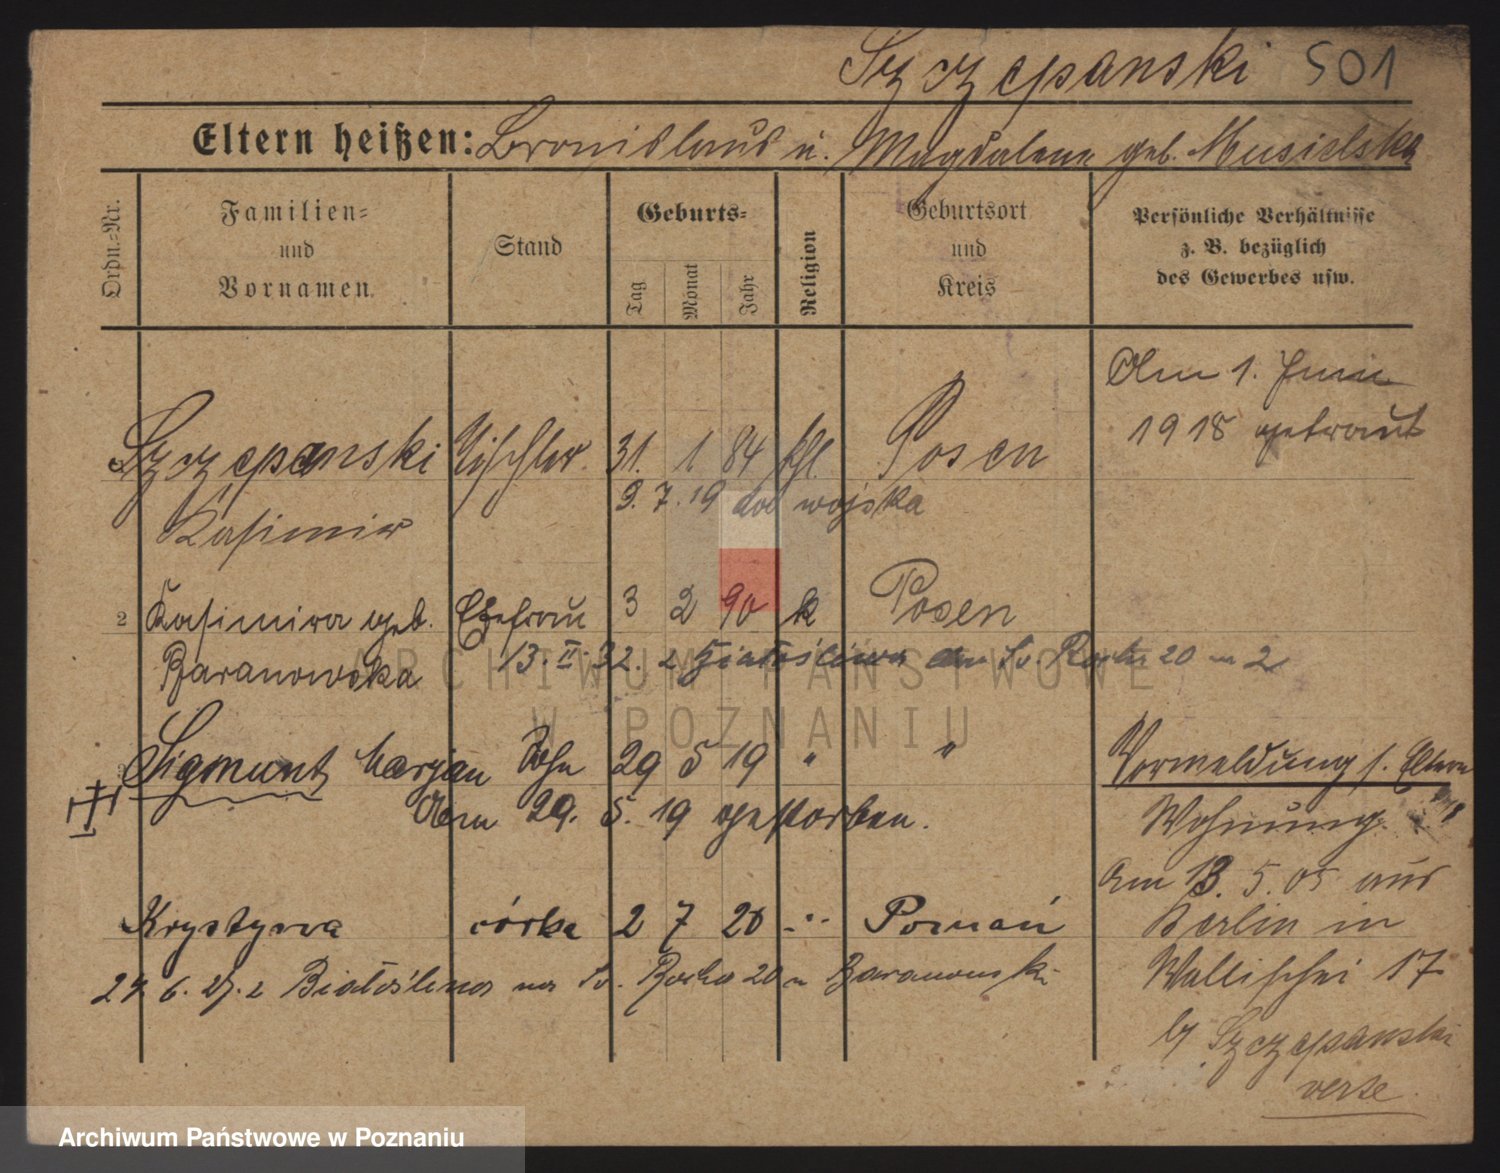 Szczepanski 501
Eltern heißen: Bronislaus u. Magdalena geb. Musielska
Ordn.=Nr.
Familien=
und
Vornamen
Stand
Geburts=
Tag
Monat
Jahr
Religion
Geburtsort
und
Kreis
Persönliche Verhältnisse
z. B. bezüglich
des Gewerbes usw.
Am 1. Juni
1918 getraut
Szczepanski Tischler 31. 1 84 kthl. Posen
9. 7. 19 do wojska
Kasimir
2 Kasimira geb. Ehefrau 3 2 90 k Posen
Baranowska 13. II. 32. z Białośliwia Św. Rocha 20 m 2
3 Sigmunt Marjan Sohn 29 5 19 " " Vormeldung s. Eltern
Am 29. 5. 19 gestorben. Wohnung.
Am 13. 5. 05 aus
Krystyna córka 2 7 20 Poznań Berlin in
24. 6. 27. z Białośliwia na Św. Rocha 20 u Baranowski Wallischei 17
b/ Szczepanski
verte
ARCHIWUM PAŃSTWOWE
W POZNANIU
Archiwum Państwowe w Poznaniu